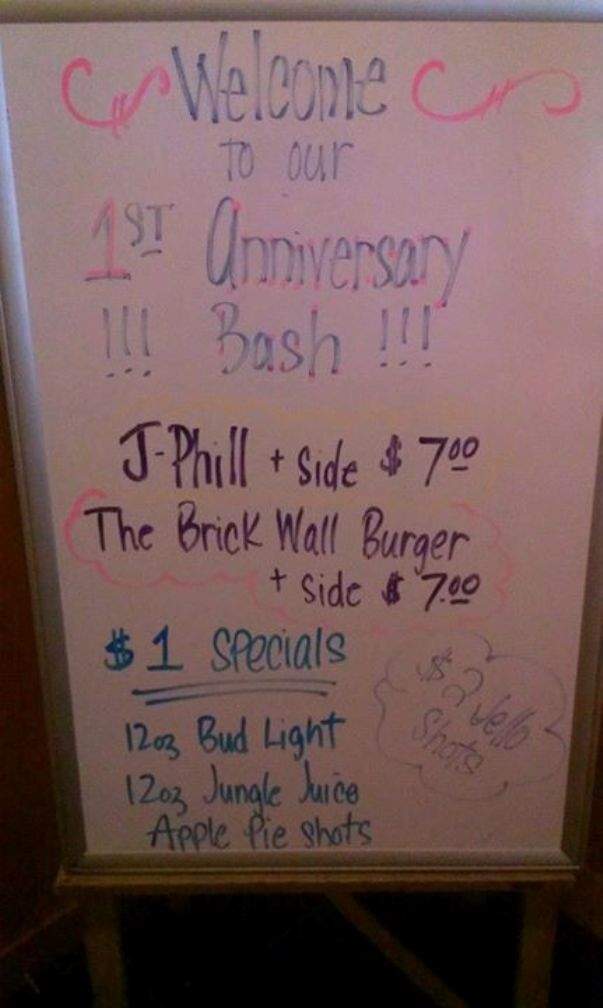 Welcome
to our
1ST Anniversary
!!! Bash !!!
J-Phill + Side $ 7.00
The Brick Wall Burger
+ side $ 7.00
$1 Specials
12oz Bud Light
12oz Jungle Juice
Apple Pie shots
$2 Jello
Shots